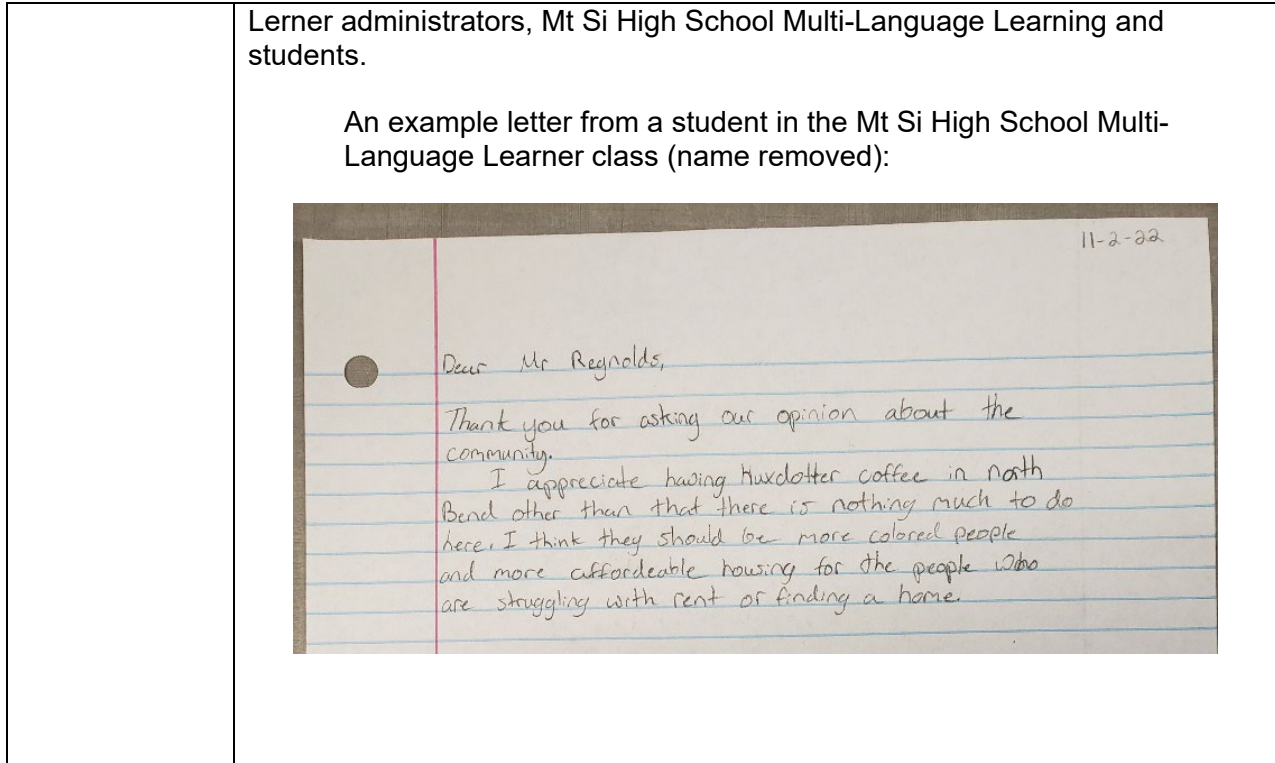 Lerner administrators, Mt Si High School Multi-Language Learning and
students.
An example letter from a student in the Mt Si High School Multi-
Language Learner class (name removed):
11-2-22
Dear Mr Reynolds,
Thank you for asking our opinion about the
community.
I appreciate having Huxdotter coffee in north
Bend other than that there is nothing much to do
here. I think they should be more colored people
and more affordeable housing for the people who
are struggling with rent or finding a home.